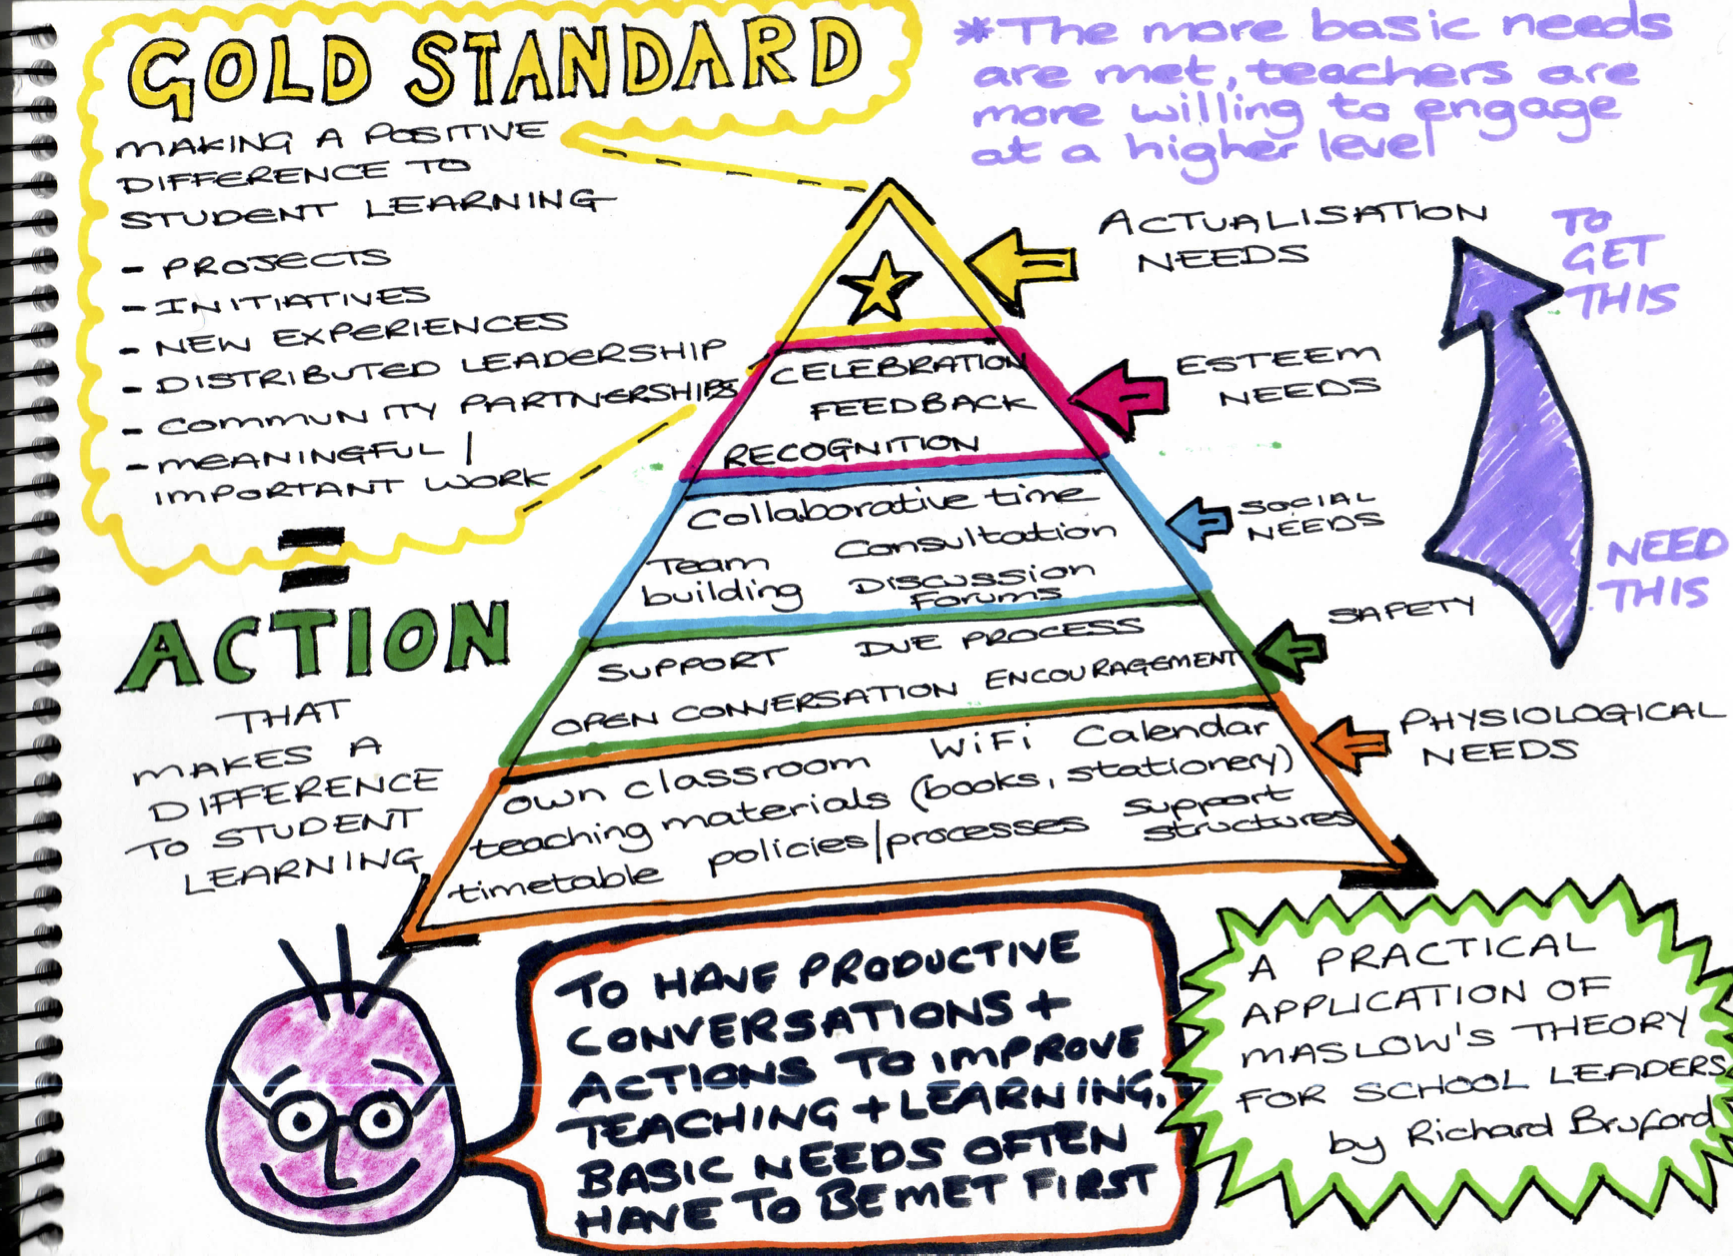 GOLD STANDARD
MAKING A POSITIVE
DIFFERENCE TO
STUDENT LEARNING
- PROJECTS
- INITIATIVES
- NEW EXPERIENCES
- DISTRIBUTED LEADERSHIP
- COMMUNITY PARTNERSHIPS
- MEANINGFUL /
IMPORTANT WORK
=
ACTION
THAT
MAKES A
DIFFERENCE
TO STUDENT
LEARNING
*The more basic needs
are met, teachers are
more willing to engage
at a higher level
ACTUALISATION
NEEDS
CELEBRATION
FEEDBACK
RECOGNITION
ESTEEM
NEEDS
Collaborative time
Team Consultation
building Discussion
Forums
SOCIAL
NEEDS
SUPPORT DUE PROCESS
OPEN CONVERSATION ENCOURAGEMENT
SAFETY
own classroom WiFi Calendar
teaching materials (books, stationery)
timetable policies/processes support
structures
PHYSIOLOGICAL
NEEDS
TO
GET
THIS
NEED
THIS
TO HAVE PRODUCTIVE
CONVERSATIONS +
ACTIONS TO IMPROVE
TEACHING + LEARNING,
BASIC NEEDS OFTEN
HAVE TO BE MET FIRST
A PRACTICAL
APPLICATION OF
MASLOW'S THEORY
FOR SCHOOL LEADERS
by Richard Bruford